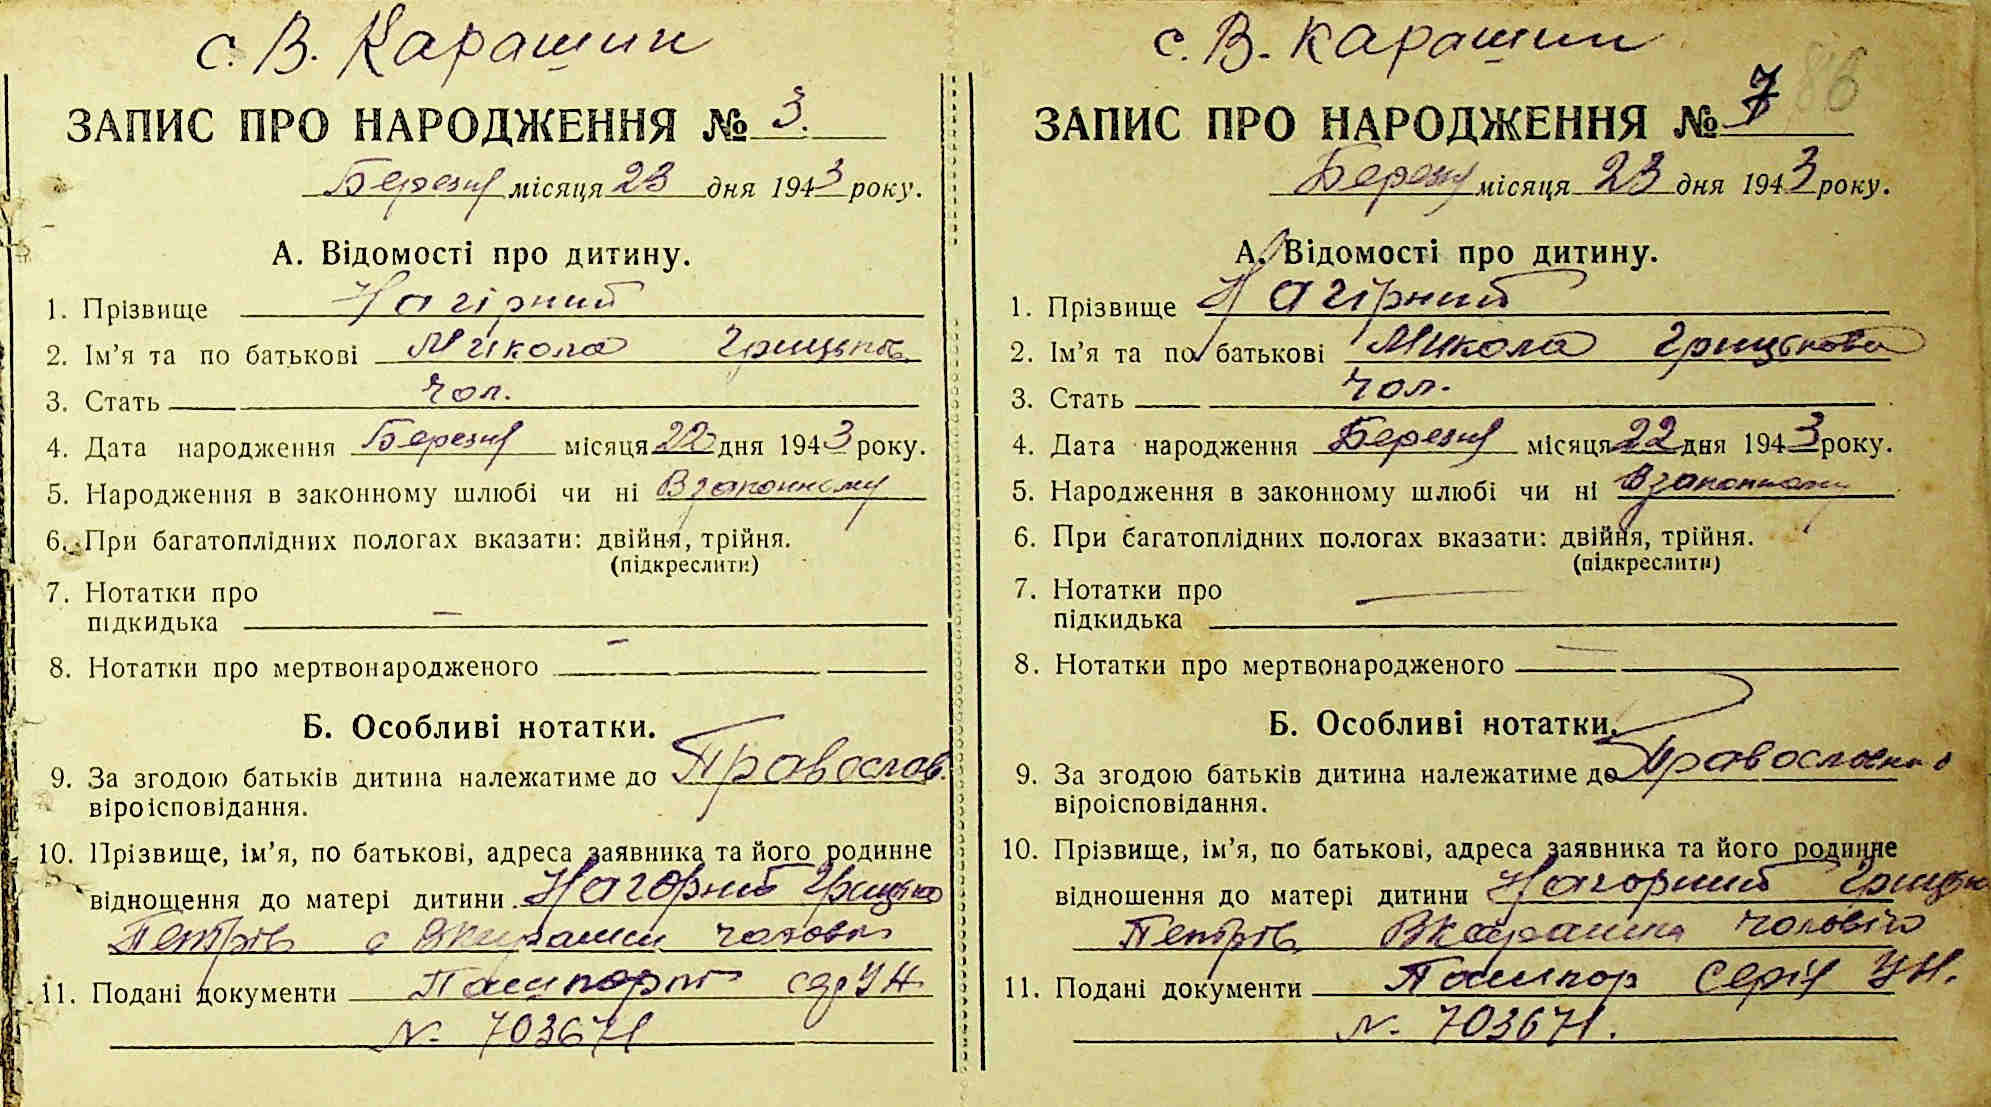 с. В. Карашин
ЗАПИС ПРО НАРОДЖЕННЯ № 3.
Березня місяця 23 дня 1943 року.
А. Відомості про дитину.
1. Прізвище Нагірний
2. Ім’я та по батькові Микола Грицьков
3. Стать чол.
4. Дата народження Березня місяця 22 дня 1943 року.
5. Народження в законному шлюбі чи ні В законному
6. При багатоплідних пологах вказати: двійня, трійня.
(підкреслити)
7. Нотатки про
підкидька –
8. Нотатки про мертвонародженого –
Б. Особливі нотатки.
9. За згодою батьків дитина належатиме до Православ.
віроісповідання.
10. Прізвище, ім’я, по батькові, адреса заявника та його родинне
відношення до матері дитини Нагорний Грицько
Петрів с Вкарашин
11. Подані документи Пашпорт УН
N. 703671
с. В. Карашин
86
ЗАПИС ПРО НАРОДЖЕННЯ № 7
Березня місяця 23 дня 1943 року.
А. Відомості про дитину.
1. Прізвище Нагірний
2. Ім’я та по батькові Микола Грицькова
3. Стать чол.
4. Дата народження Березня місяця 22 дня 1943 року.
5. Народження в законному шлюбі чи ні В законному
6. При багатоплідних пологах вказати: двійня, трійня.
(підкреслити)
7. Нотатки про
підкидька —
8. Нотатки про мертвонародженого —
Б. Особливі нотатки.
9. За згодою батьків дитина належатиме до Православно
віроісповідання.
10. Прізвище, ім’я, по батькові, адреса заявника та його родинне
відношення до матері дитини Нагорний Грицько
Петрів Вкарашин чоловік
11. Подані документи Пашпор Серія УН.
N. 703671.